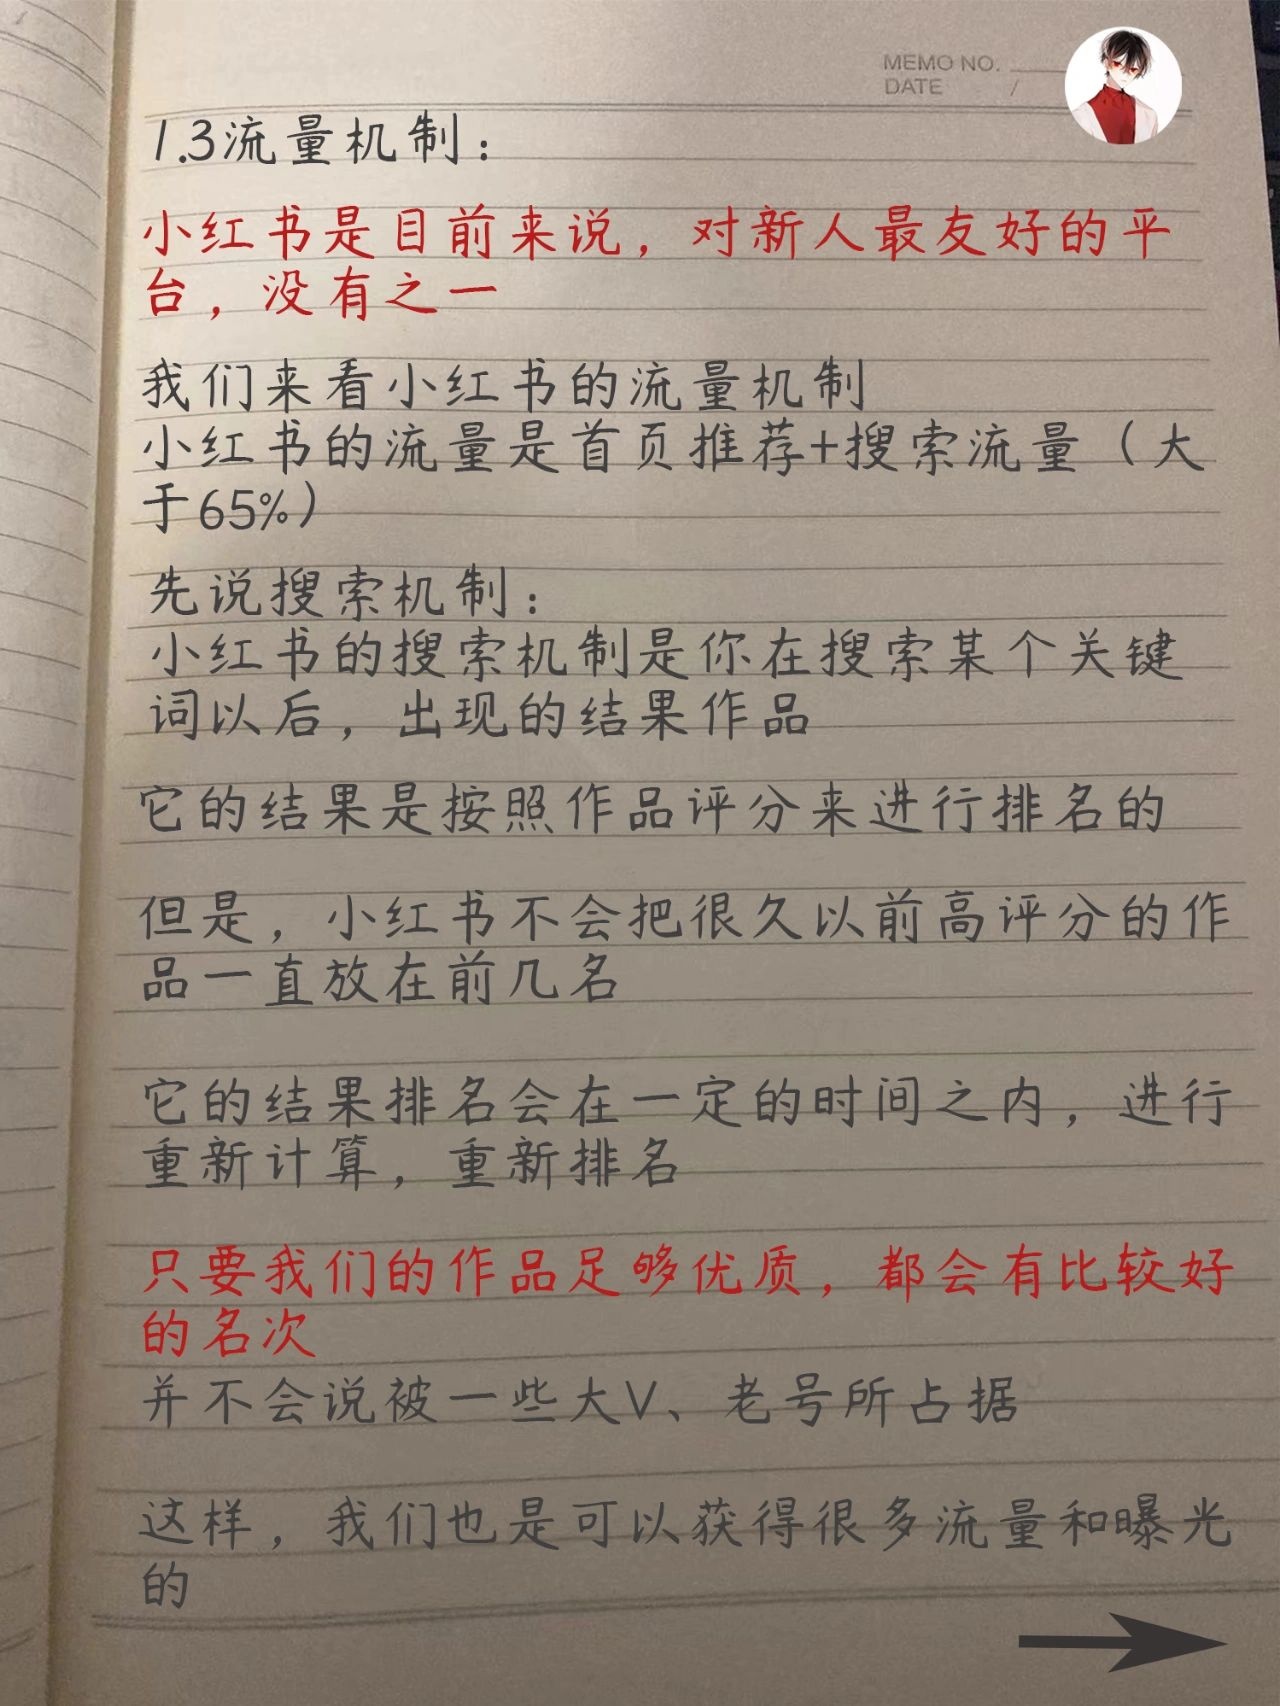 MEMO NO.
DATE /
1.3流量机制：
小红书是目前来说，对新人最友好的平
台，没有之一
我们来看小红书的流量机制
小红书的流量是首页推荐+搜索流量（大
于65%）
先说搜索机制：
小红书的搜索机制是你在搜索某个关键
词以后，出现的结果作品
它的结果是按照作品评分来进行排名的
但是，小红书不会把很久以前高评分的作
品一直放在前几名
它的结果排名会在一定的时间之内，进行
重新计算，重新排名
只要我们的作品足够优质，都会有比较好
的名次
并不会说被一些大V、老号所占据
这样，我们也是可以获得很多流量和曝光
的